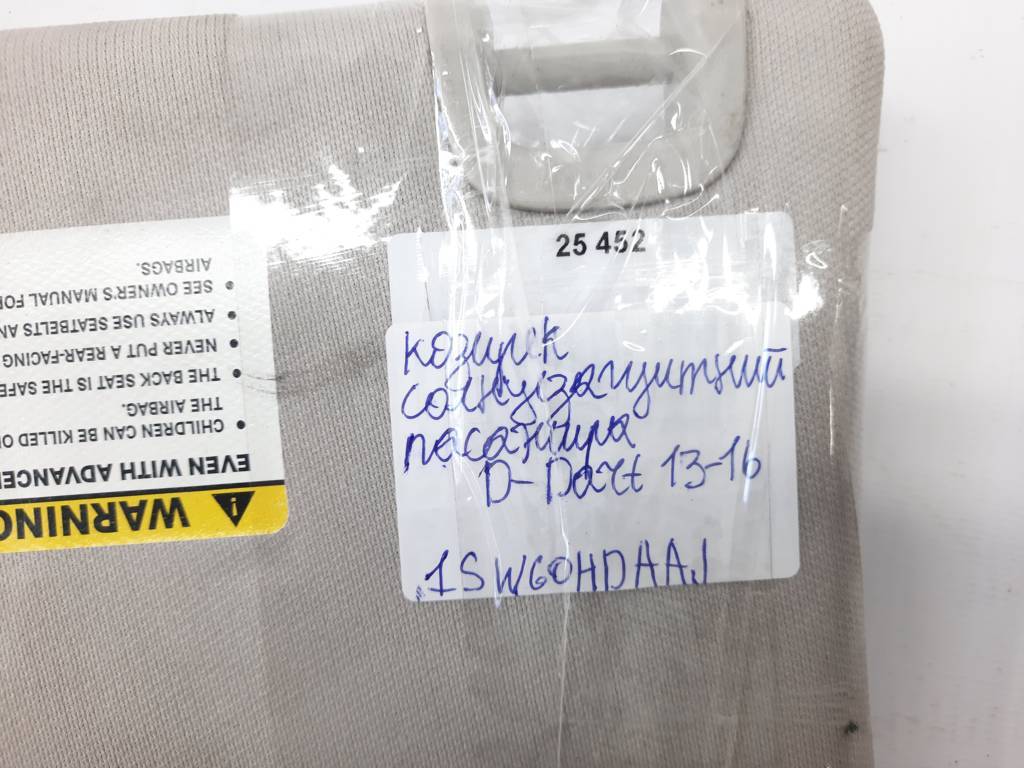 25 452
козирек
сонцізащитний
пасажира
D-Dart 13-16
1SW60HDAAJ
WARNING
EVEN WITH ADVANCE
CHILDREN CAN BE KILLED O
THE AIRBAG.
THE BACK SEAT IS THE SAFE
NEVER PUT A REAR-FACING
ALWAYS USE SEATBELTS AN
SEE OWNER'S MANUAL FOR
AIRBAGS.